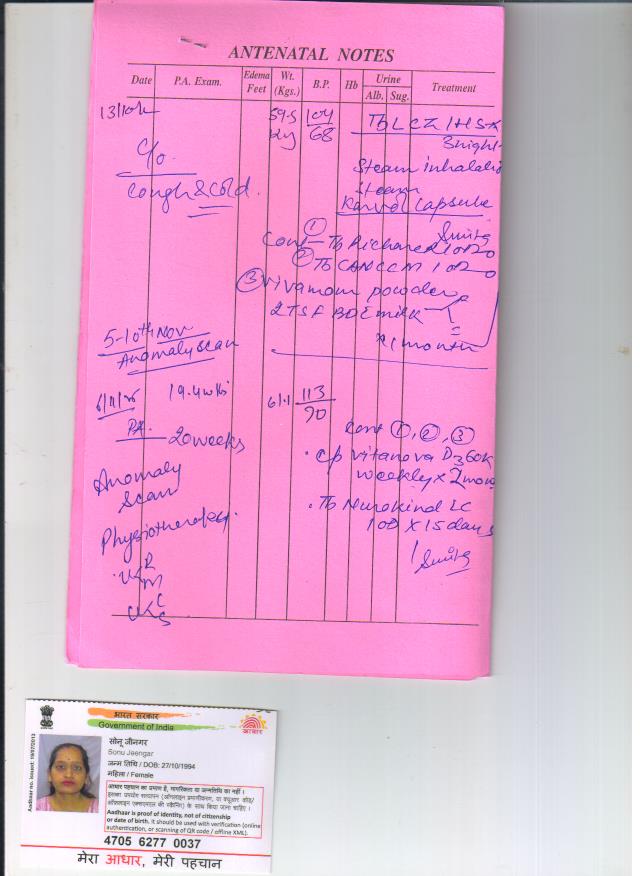 ANTENATAL NOTES
Date P.A. Exam. Edema Feet Wt. (Kgs.) B.P. Hb Urine Alb. Sug. Treatment
59.5 kg 104/68 Tb LCZ 1HS x
3 night
C/o.
Cough & Cold.
Steam inhalatio
Steam
Karvol Capsule
Cont – ① Tb 1 OD
② Tb 1 OD
③ powder
2 TSF BD E milk
x 1 month
5-10th Nov
Anomaly scan
19.4 wks 61.1 113/90
Cont ①, ②, ③
PA. 20 weeks
. Cp vitanova D3 60K
weekly x 2 mon
Anomaly
Scan
. Tb Nurokind LC
1 OD x 15 days
Physiotherapy.
भारत सरकार
Government of India
आधार
Aadhaar no. issued: 19/07/2013
सोनू जीनगर
Sonu Jeengar
जन्म तिथि / DOB: 27/10/1994
महिला / Female
आधार पहचान का प्रमाण है, नागरिकता या जन्मतिथि का नहीं ।
इसका उपयोग सत्यापन (ऑनलाइन प्रमाणीकरण, या क्यूआर कोड/
ऑफ़लाइन एक्सएमएल की स्कैनिंग) के साथ किया जाना चाहिए ।
Aadhaar is proof of identity, not of citizenship
or date of birth. It should be used with verification (online
authentication, or scanning of QR code / offline XML).
4705 6277 0037
मेरा आधार, मेरी पहचान